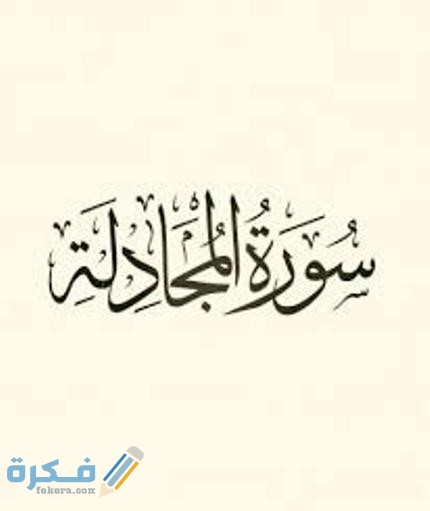 سُورَةُ المُجَادِلَةِ
فكرة
fekera.com